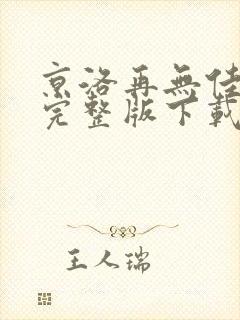 京洛再無佳
完整版下載
王人瑞